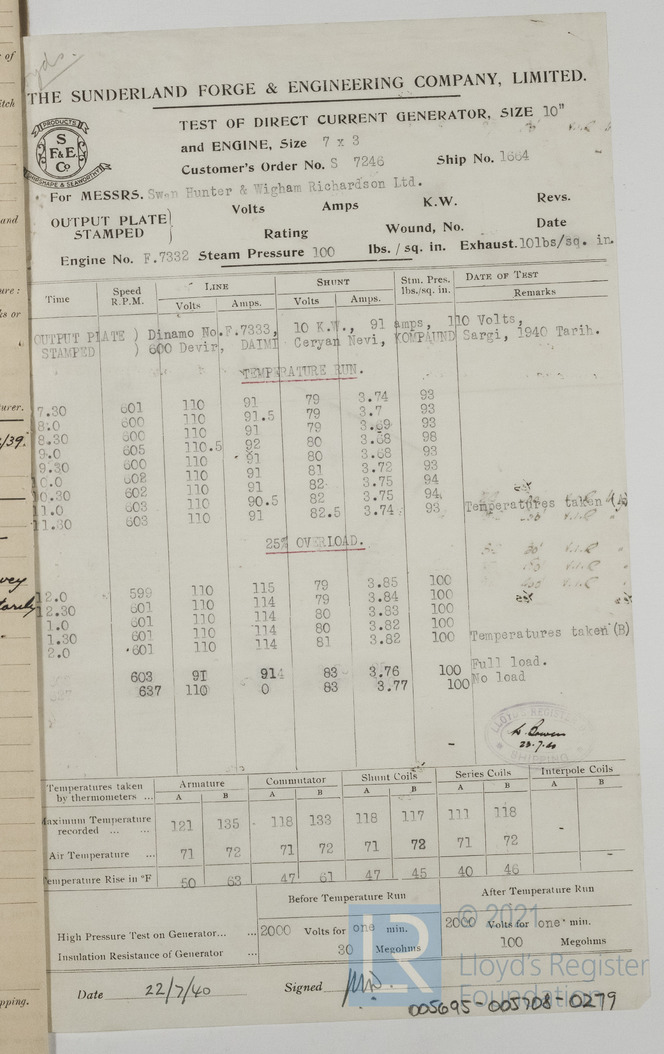 THE SUNDERLAND FORGE & ENGINEERING COMPANY, LIMITED.
TEST OF DIRECT CURRENT GENERATOR, SIZE 10"
and ENGINE, Size 7 x 3
Customer's Order No. S 7246 Ship No. 1664
PRODUCTS
S
F&E
Co
SHIPSHAPE & SEAWORTHY
For MESSRS. Swan Hunter & Wigham Richardson Ltd.
OUTPUT PLATE STAMPED ) Volts Amps K.W. Revs.
Rating Wound, No. Date
Engine No. F.7332 Steam Pressure 100 lbs./sq. in. Exhaust. 10lbs/sq. in.
Time Speed R.P.M. LINE SHUNT Stm. Pres. lbs./sq. in. DATE OF TEST
Volts Amps. Volts Amps. Remarks
OUTPUT PLATE ) Dinamo No.F.7333, 10 K.W., 91 amps, 110 Volts,
STAMPED ) 600 Devir, DAIMI Ceryan Nevi, KOMPAUND Sargi, 1940 Tarih.
TEMPERATURE RUN.
7.30 601 110 91 79 3.74 93
8.0 600 110 91.5 79 3.7 93
8.30 600 110 91 79 3.69 93
9.0 605 110.5 92 80 3.68 98
9.30 600 110 91 80 3.68 93
10.0 602 110 91 81 3.72 93
10.30 602 110 91 82 3.75 94
11.0 603 110 90.5 82 3.75 94
11.30 603 110 91 82.5 3.74 93 Temperatures taken (A)
25% OVERLOAD.
12.0 599 110 115 79 3.85 100
12.30 601 110 114 79 3.84 100
1.0 601 110 114 80 3.83 100
1.30 601 110 114 80 3.82 100
2.0 601 110 114 81 3.82 100 Temperatures taken (B)
603 91 914 83 3.76 100 Full load.
637 110 0 83 3.77 100 No load
LLOYD'S REGISTER
SHIPPING
23-7-40
Temperatures taken by thermometers ... Armature Commutator Shunt Coils Series Coils Interpole Coils
A B A B A B A B A B
Maximum Temperature recorded ... ... 121 135 118 133 118 117 111 118 -
Air Temperature ... 71 72 71 72 71 72 71 72 -
Temperature Rise in °F 50 63 47 61 47 45 40 46
Before Temperature Run After Temperature Run
High Pressure Test on Generator... ... 2000 Volts for one min. 2000 Volts for one min.
Insulation Resistance of Generator ... 30 Megohms 100 Megohms
Date 22/7/40 Signed
LR
© 2021
Lloyd's Register
Foundation
005695-005708-0279